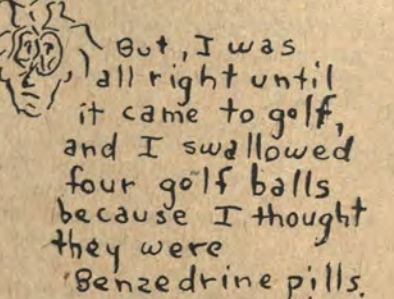 But, I was
all right until
it came to golf,
and I swallowed
four golf balls
because I thought
they were
Benzedrine pills.